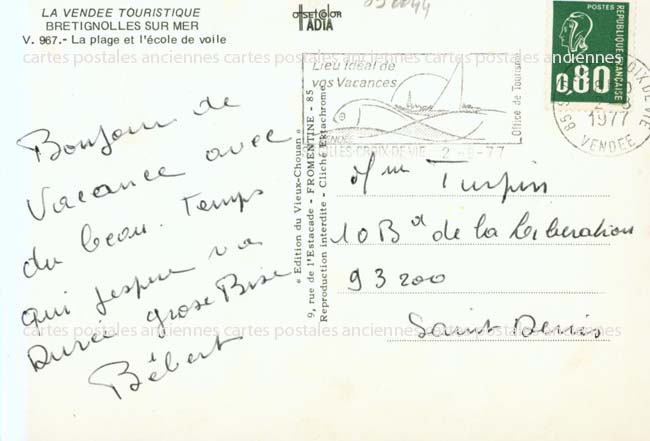 LA VENDEE TOURISTIQUE
BRETIGNOLLES SUR MER
V. 967.- La plage et l'école de voile
offsetcolor
IADIA
cartes postales anciennes cartes postales anciennes cartes postales anciennes
Bonjour de
Vacance avec
du beau. Temps
qui j'espere va
Durée grose Bise
Bébert
« Edition du Vieux-Chouan »
9, rue de l'Estacade - FROMENTINE - 85
Reproduction interdite - Cliché Ektachrome
Lieu Idéal de
vos Vacances
Office de Tourisme
GILLES-CROIX-DE-VIE 2-8-77
POSTES
REPUBLIQUE FRANÇAISE
0,80
85 CROIX DE VIE
1977
VENDEE
Mme Turpin
10 Bd de la Liberation
93200
Saint-Denis
cartes postales anciennes cartes postales anciennes cartes postales anciennes